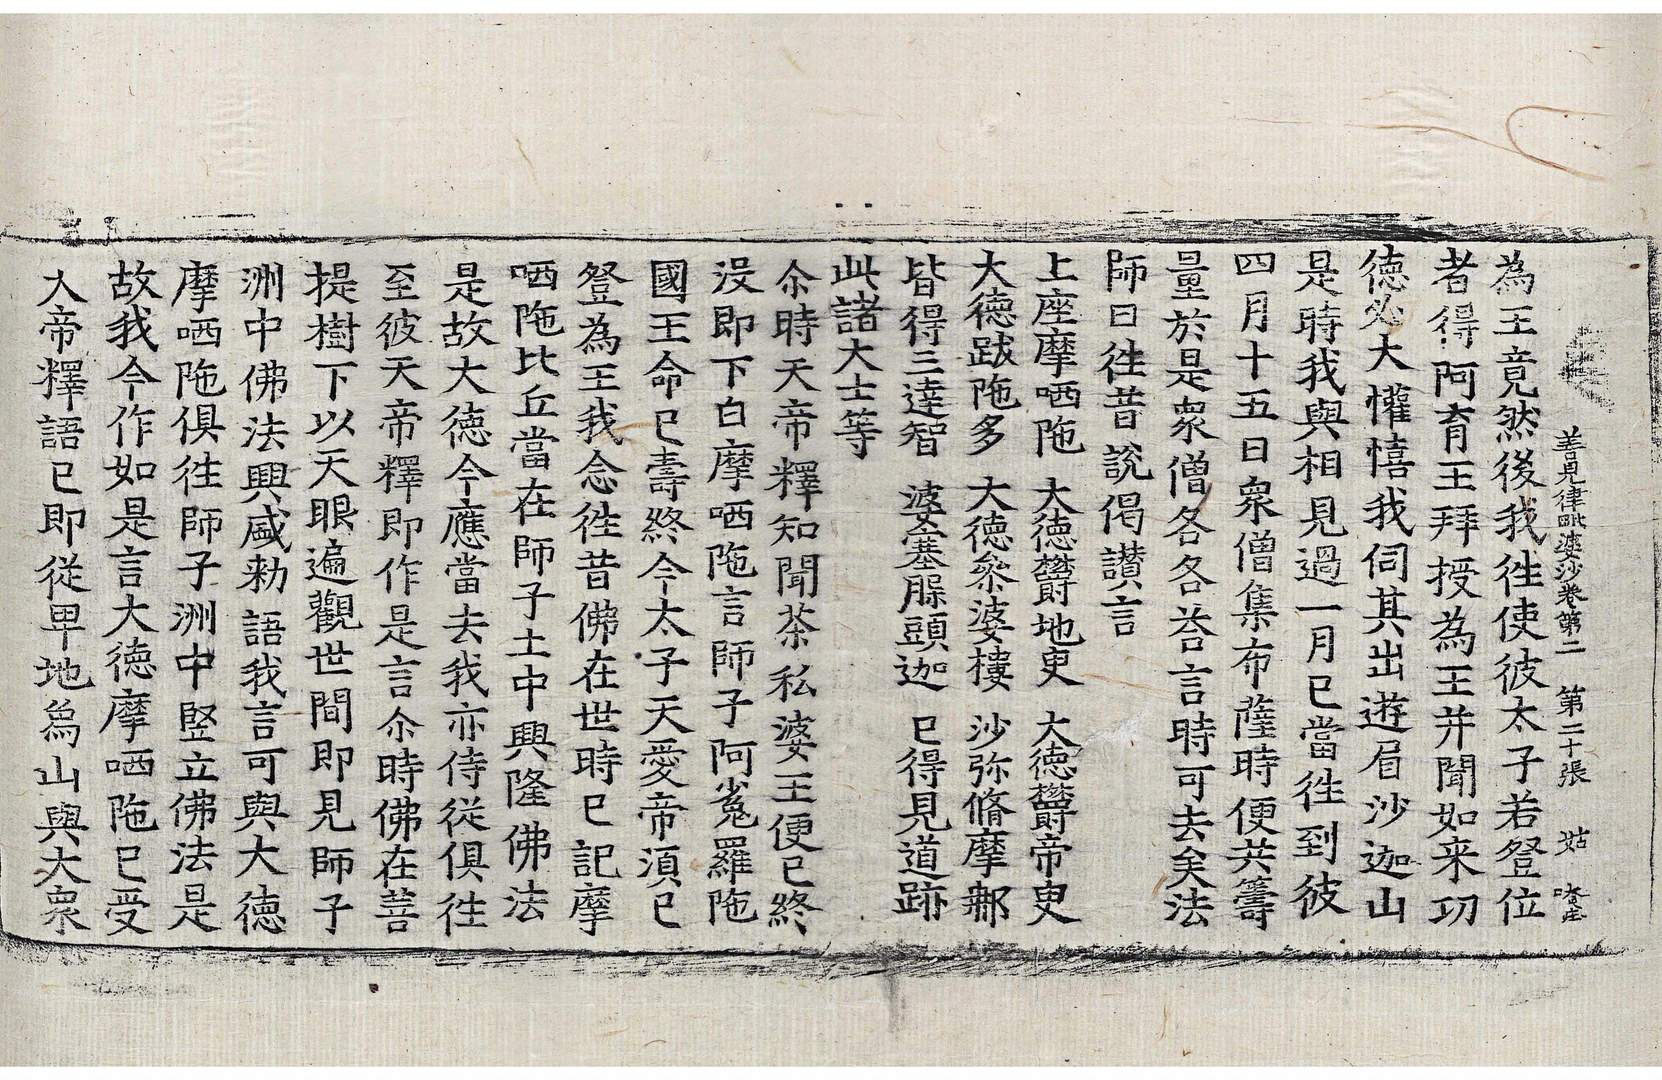 善見律毗婆沙卷第二　第二十張　姑
為王竟然後我往使彼太子若登位
者得阿育王拜授為王并聞如来功
德必大懽憘我伺其出遊眉沙迦山
是時我與相見過一月已當往到彼
四月十五日衆僧集布薩時便共籌
量於是衆僧各各荅言時可去矣法
師曰往昔說偈讃言
上座摩哂陁　大德欝地臾　大德欝帝臾
大德跋陁多　大德叅婆樓　沙弥脩摩那
皆得三達智　婆塞脲頭迦　已得見道跡
此諸大士等
尒時天帝釋知聞茶私婆王便已終
没即下白摩哂陁言師子阿㝹羅陁
國王命已壽終今太子天愛帝湏已
登為王我念往昔佛在世時已記摩
哂陁比丘當在師子土中興隆佛法
是故大德今應當去我亦侍從俱往
至彼天帝釋即作是言尒時佛在菩
提樹下以天眼遍觀世間即見師子
洲中佛法興盛勑語我言可與大德
摩哂陁俱往師子洲中竪立佛法是
故我今作如是言大德摩哂陁已受
大帝釋語已即從卑地為山與大衆